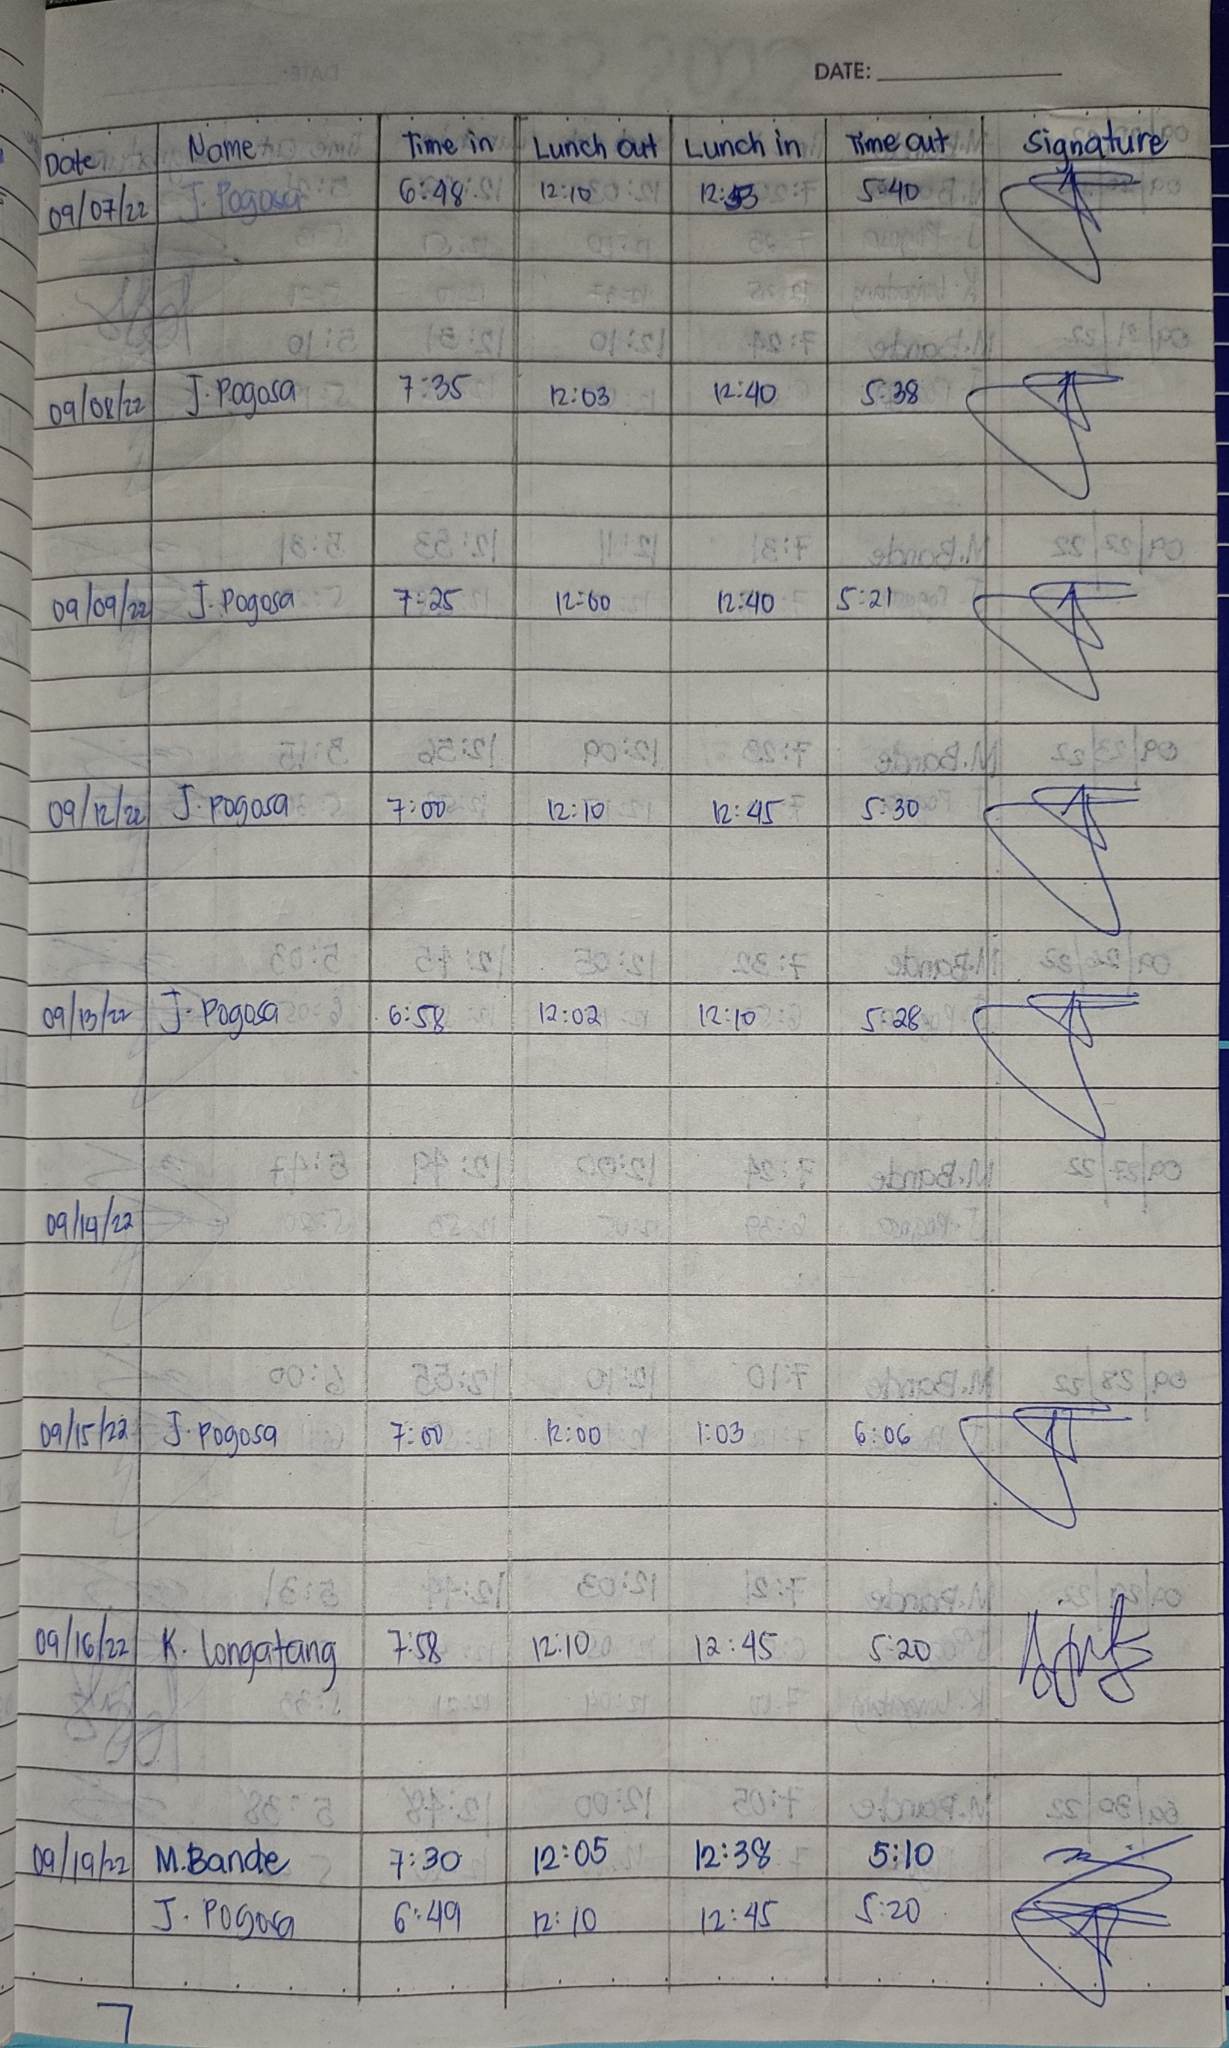 DATE:
Date Name Time in Lunch out Lunch in Time out Signature
09/07/22 J. Pogosa 6:48 12:10 5:40
09/08/22 J. Pogosa 7:35 12:03 12:40 5:38
09/09/22 J. Pogosa 7:25 12:00 12:40 5:21
09/12/22 J. Pogosa 7:00 12:10 12:45 5:30
09/13/22 J. Pogosa 6:58 12:02 12:10 5:28
09/14/22
09/15/22 J. Pogosa 7:00 12:00 1:03 6:06
09/16/22 K. Longatang 7:58 12:10 12:45 5:20
09/19/22 M.Bande 7:30 12:05 12:38 5:10
J. Pogosa 6:49 12:10 12:45 5:20
7